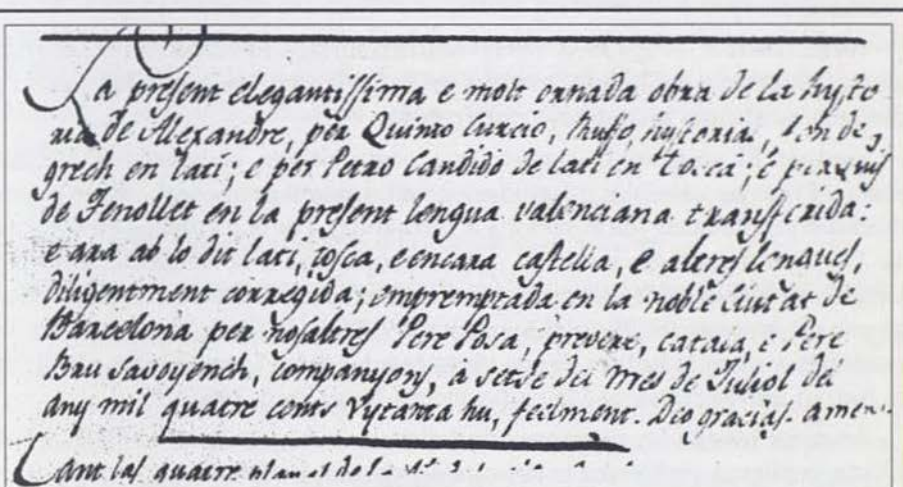 La present elegantissima e molt ornada obra de la hysto
ria de Alexandre, per Quinto Curcio, Ruffo, hystorial, fon de
grech en lati; e per Petro Candido de lati en Tosca; e per Luis
de Fenollet en la present lengua valenciana transcrida:
e ara ab lo dit lati, tosca, e encara castella, e altres lengues,
diligentment corregida; empremptada en la noble Ciutat de
Barcelona per nosaltres Pere Posa, prevere, catala, e Pere
Bru Savoyench, companyons, a setse del mes de Juliol del
any mil quatre cents vytanta hu, feelment. Deo gracias. amen.